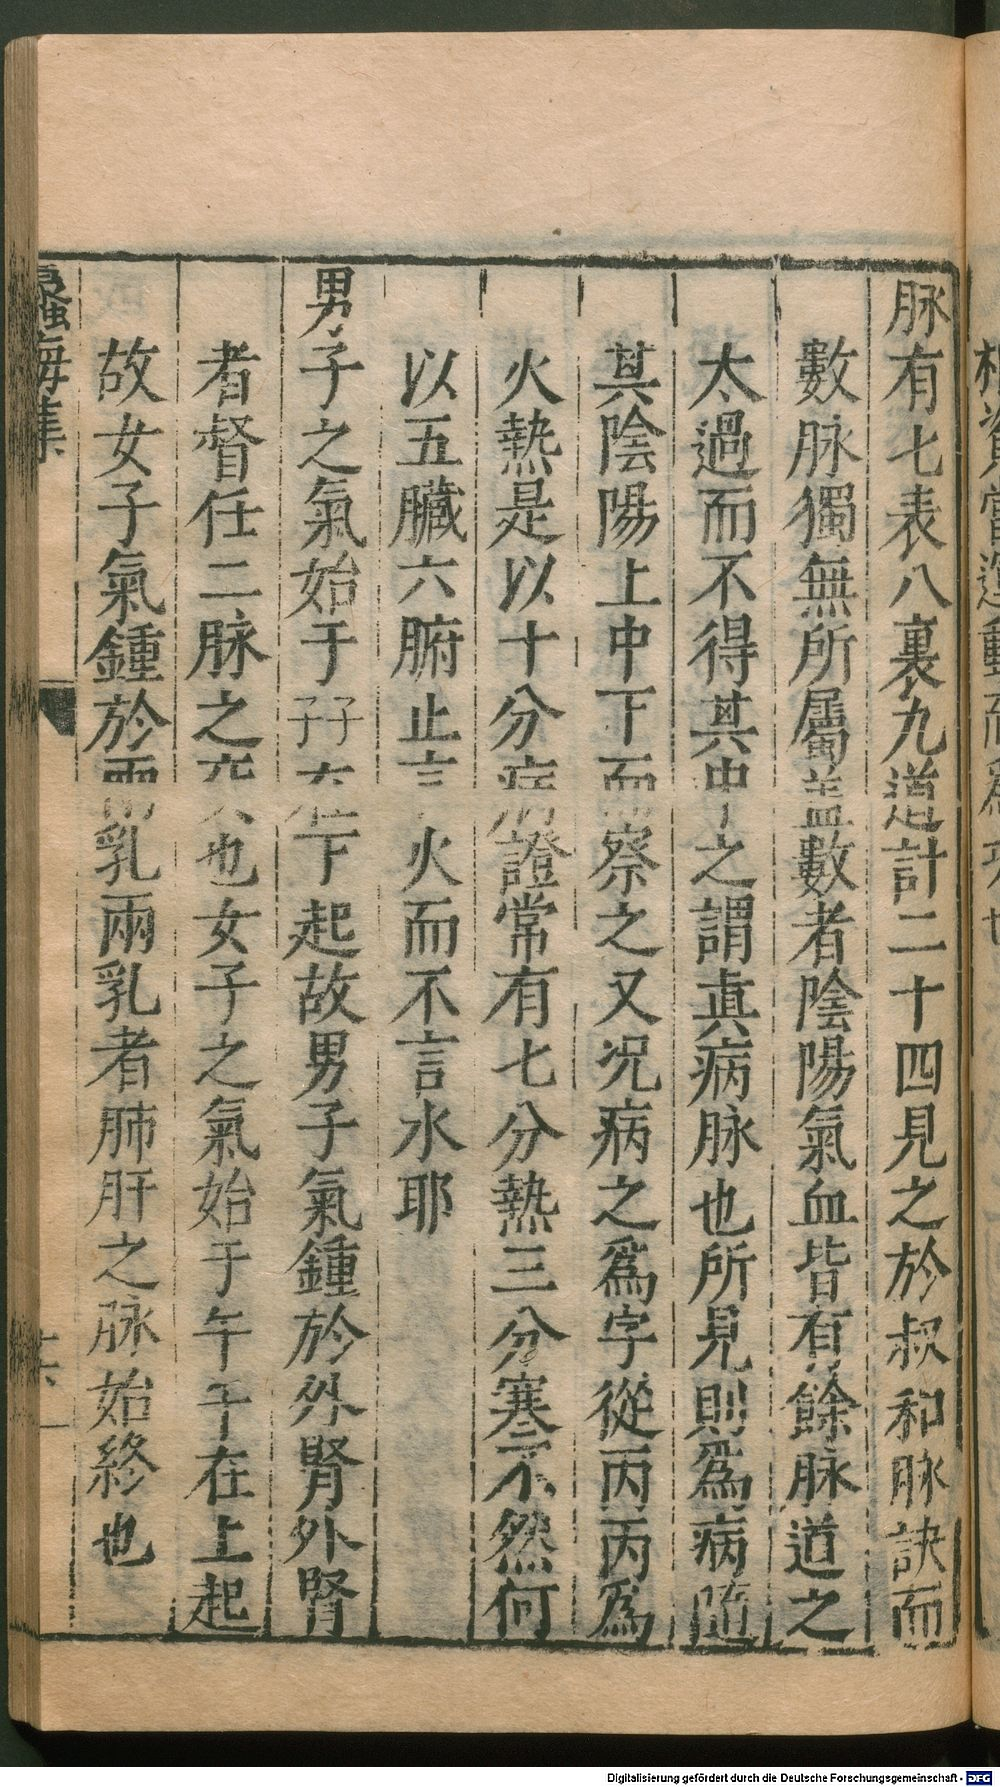 脉有七表八裏九道計二十四見之於叔和脉訣而
數脉獨無所屬葢數者陰陽氣血皆有餘脉道之
太過而不得其中之謂眞病脉也所見則爲病隨
其陰陽上中下而察之又况病之爲字從丙丙爲
火熱是以十分病證常有七分熱三分寒不然何
以五臓六腑止言火而不言水耶
男子之氣始于子子在下起故男子氣鍾於外腎外腎
者督任二脉之交也女子之氣始于午午在上起
故女子氣鍾於兩乳兩乳者肺肝之脉始終也
蠡海集
Digitalisierung gefördert durch die Deutsche Forschungsgemeinschaft - DFG